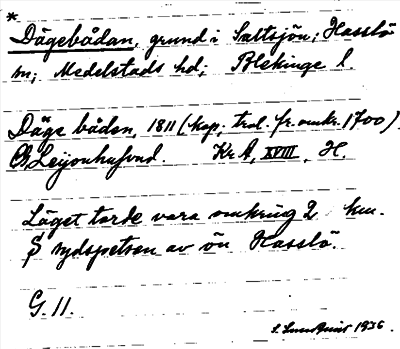 *
Dägebådan, grund i Saltsjön; Hasslö
sn; Medelstads hd; Blekinge l.
Däge bådan, 1811 (kop; trol. fr. omkr. 1700)
C. Leijonhufvud. Kr A, XVIII, H.
Läget torde vara omkring 2 km.
S sydspetsen av ön Hasslö.
G. 11.
1936